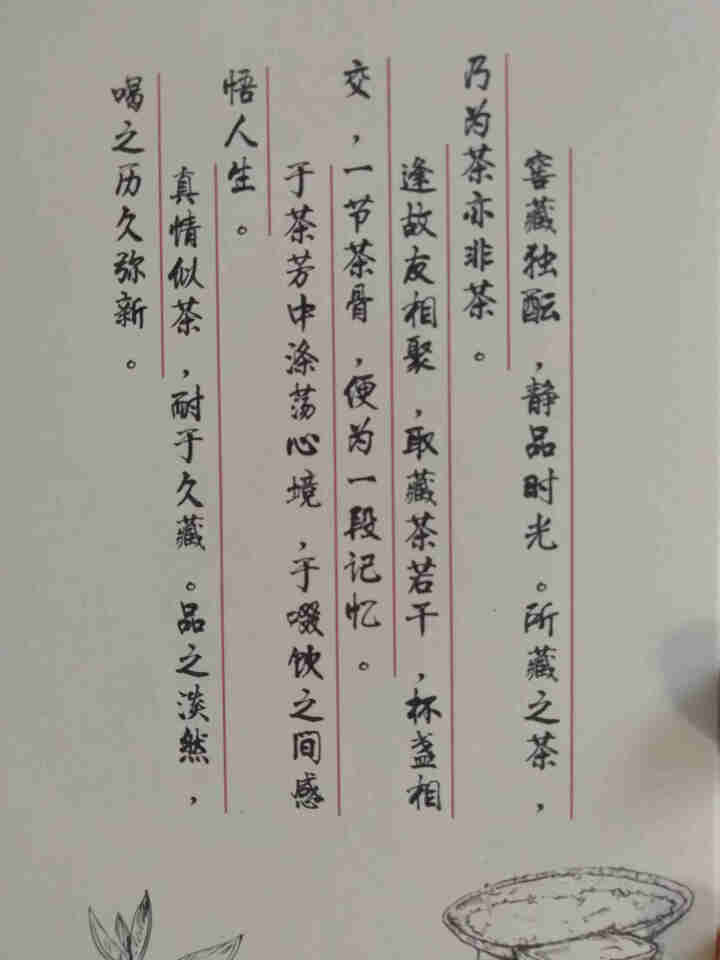 窖藏独酝，静品时光。所藏之茶，
乃为茶亦非茶。
逢故友相聚，取藏茶若干，杯盏相
交，一节茶骨，便为一段记忆。
于茶芳中涤荡心境，于啜饮之间感
悟人生。
真情似茶，耐于久藏。品之淡然，
喝之历久弥新。